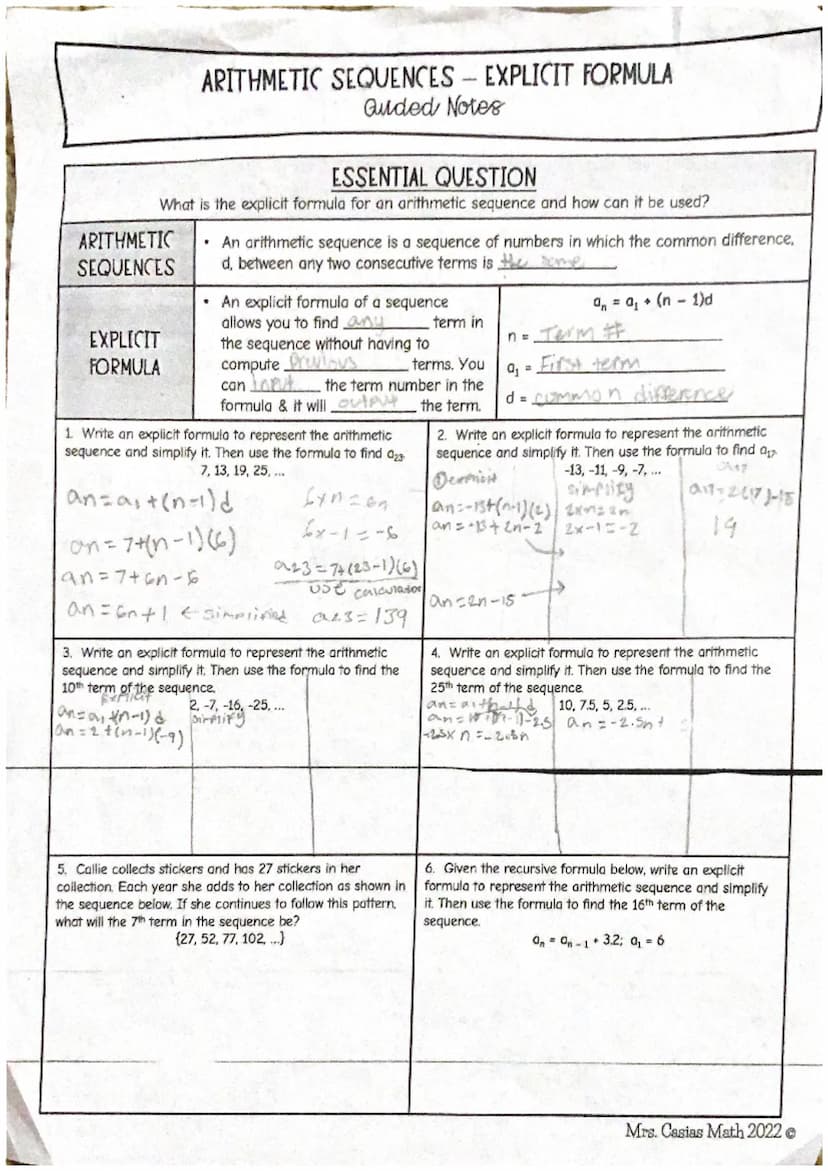 ARITHMETIC SEQUENCES – EXPLICIT FORMULA
Guided Notes
ESSENTIAL QUESTION
What is the explicit formula for an arithmetic sequence and how can it be used?
ARITHMETIC
SEQUENCES
• An arithmetic sequence is a sequence of numbers in which the common difference,
d, between any two consecutive terms is the same.
EXPLICIT
FORMULA
• An explicit formula of a sequence
allows you to find any term in
the sequence without having to
compute previous terms. You
can input the term number in the
formula & it will output the term.
aₙ = a₁ + (n – 1)d
n = Term #
a₁ = First term
d = common difference
1. Write an explicit formula to represent the arithmetic
sequence and simplify it. Then use the formula to find a₂₃.
7, 13, 19, 25, ...
an=a₁+(n-1)d
6xn=6n
an=7+(n-1)(6)
6x-1=-6
an=7+6n-6
a23=7+(23-1)(6)
use calculador
an=6n+1 ← simplified
a23=139
2. Write an explicit formula to represent the arithmetic
sequence and simplify it. Then use the formula to find a₁₇.
-13, -11, -9, -7, ...
simplify
an=-13+(n-1)(2)
2xn=2n
a17=2(17)-15
an=-13+2n-2
2x-1=-2
19
an=2n-15
3. Write an explicit formula to represent the arithmetic
sequence and simplify it. Then use the formula to find the
10th term of the sequence.
2, -7, -16, -25, ...
Explicit
simplify
an=a₁+(n-1)d
an=2+(n-1)(-9)
4. Write an explicit formula to represent the arithmetic
sequence and simplify it. Then use the formula to find the
25th term of the sequence.
10, 7.5, 5, 2.5, ...
an=-2.5n+
-2.5x n=-2.5n
5. Callie collects stickers and has 27 stickers in her
collection. Each year she adds to her collection as shown in
the sequence below. If she continues to follow this pattern,
what will the 7th term in the sequence be?
{27, 52, 77, 102, ...}
6. Given the recursive formula below, write an explicit
formula to represent the arithmetic sequence and simplify
it. Then use the formula to find the 16th term of the
sequence.
aₙ = aₙ₋₁ + 3.2; a₁ = 6
Mrs. Casias Math 2022 ©